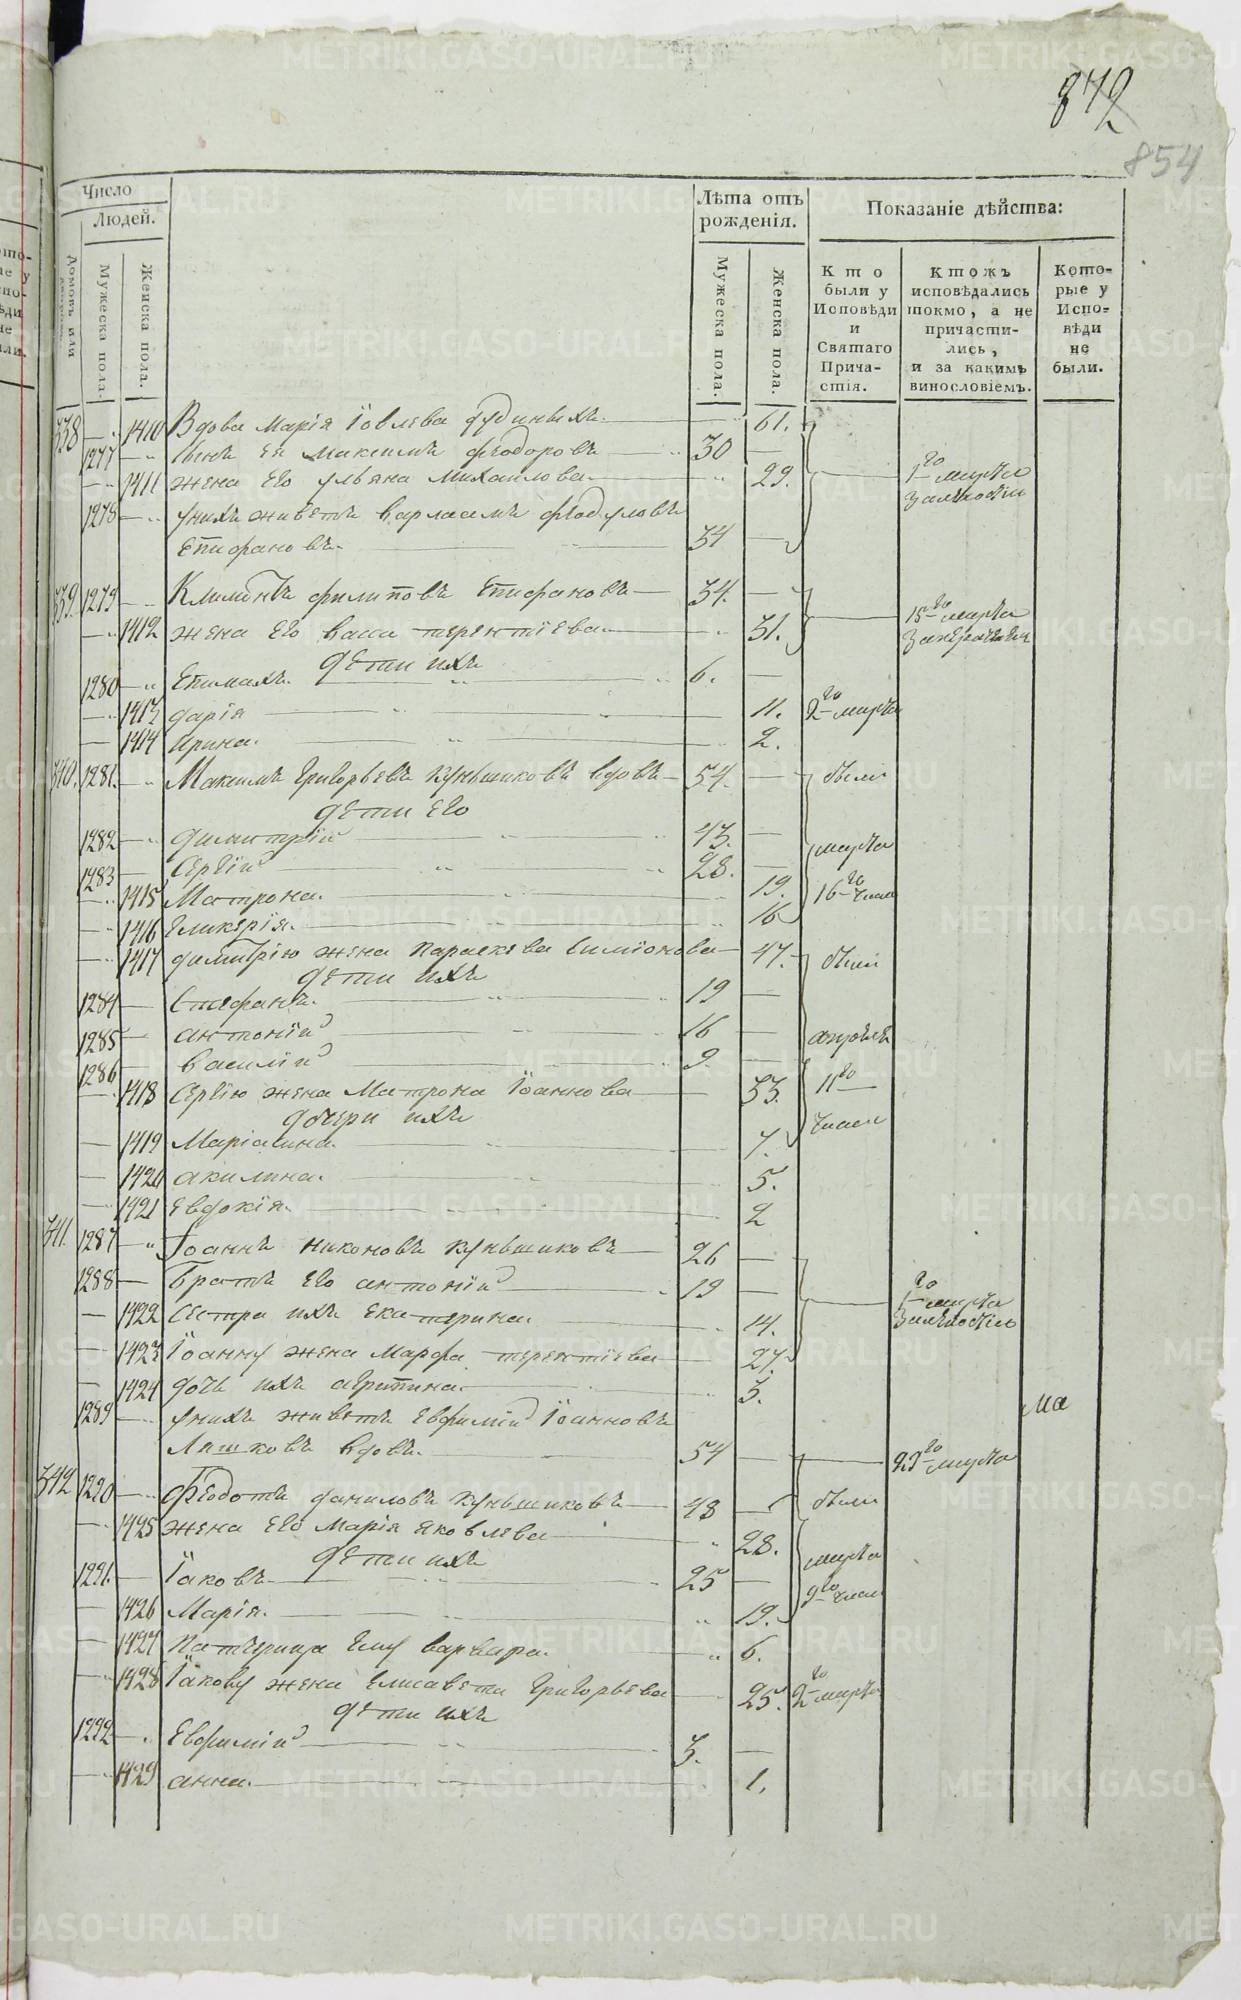 872
854
Число
Людей.
Домовъ или
Мужеска пола.
Женска пола.
Лѣта отъ рожденія.
Мужеска пола.
Женска пола.
Показаніе дѣйства:
Кто были у Исповѣди и Святаго Прича-стія.
Ктожъ исповѣдались токмо, а не причасти-лись, и за какимъ винословіемъ.
Кото-рые у Испо-вѣди не были.
338 1410 Вдова Марія Іовлева 61.
1277 Сынъ ея Максимъ Феодоровъ 30
1411 жена его ульяна Михаилова 29. 1го марта
1278 унихъ живетъ варлаамъ Феодуловъ
Епифановъ 34
339. 1279 Климентъ филиповъ Епифановъ 34. 15го марта
1412 жена его васса терентіева 31.
дѣти ихъ
1280 Епимахъ. 6.
1413 дарія 11. 2го марта
1414 Ирина. 2.
340. 1281. Максимъ Григорьевъ Куньщиковъ вдовъ 54. были
дѣти его
1282 димитрій 43. марта
1283 Сергій 28.
1415 Матрона. 19. 16го числа
1416 Гликерія. 16
1417 димитрію жена параскева Симіонова 47. были
дѣти ихъ
1284 Стефанъ. 19
1285 антоній 16 апрѣля
1286 василій 9.
1418 Сергію жена Матрона Іоаннова 33. 11го
дочери ихъ числа
1419 Маріамна. 7.
1420 акилина. 5.
1421 Евдокія. 2
341. 1287 Іоаннъ никоновъ Куньщиковъ 26
1288 Братъ его антоній 19 1го марта
1422 Сестра ихъ Екатерина. 14.
1423 Іоанну жена Марфа терентіева 27.
1424 дочь ихъ агрипина. 3.
1289 унихъ живетъ Евфимій Іоанновъ ма
Ляшковъ вдовъ. 54 23го марта
342 1290 Феодотъ даниловъ Куньщиковъ 48 были
1425 жена его Марія яковлева 28.
дѣти ихъ марта
1291. Іаковъ 25 9го числа
1426 Марія. 19.
1427 патчерица Ему варвара. 6.
1428 Іакову жена Елисавета Григорьева 25. 2го марта
дѣти ихъ
1292 Евфимій 3.
1429 анна. 1.
METRIKI.GASO-URAL.RU